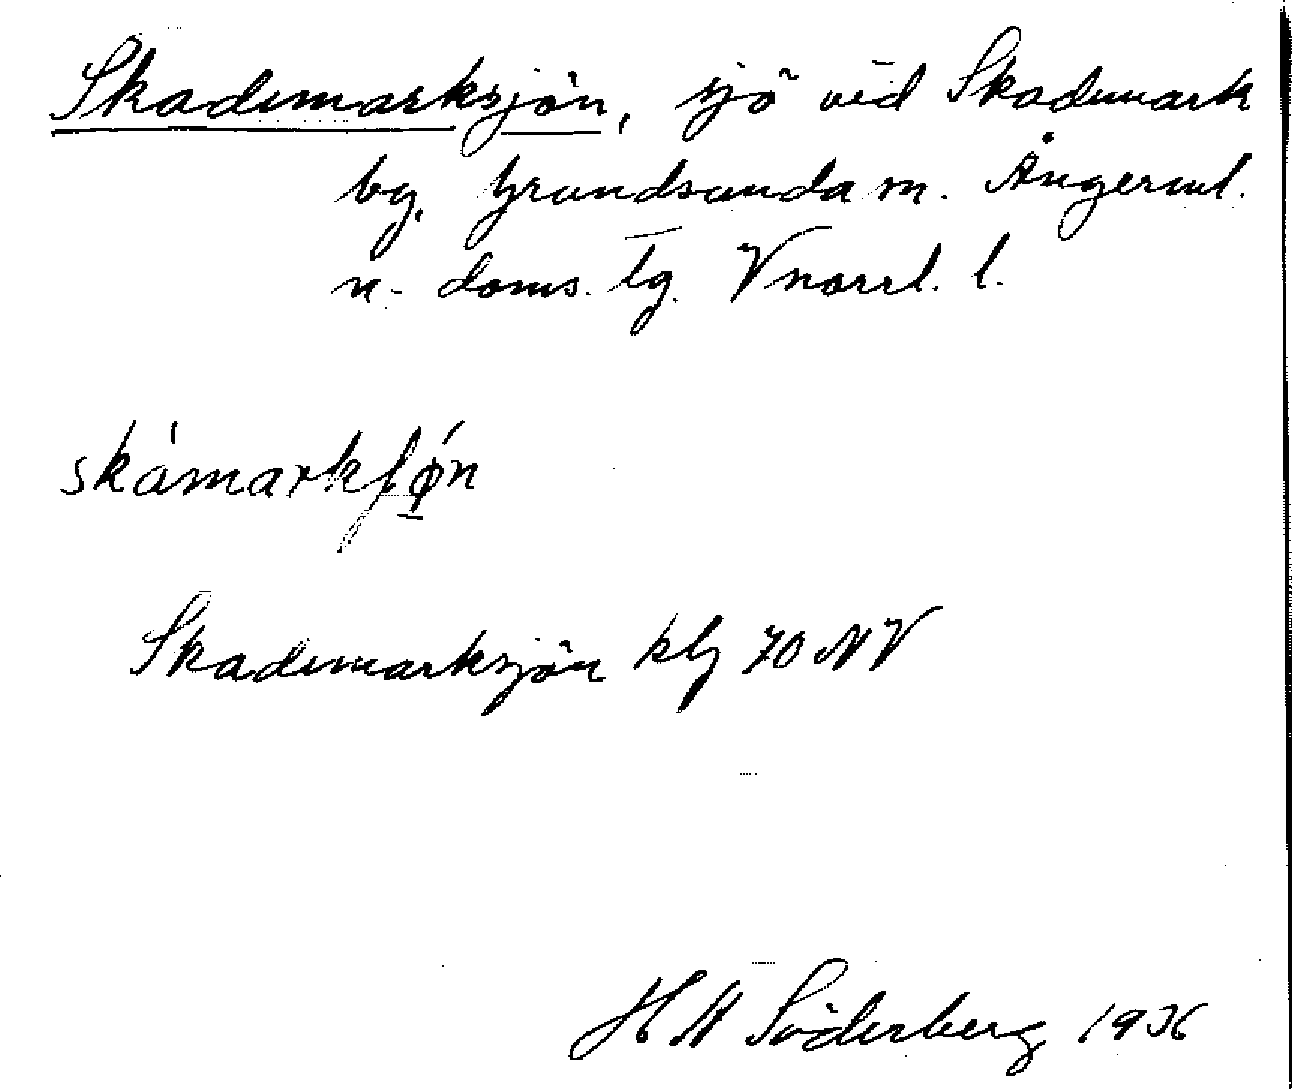 Skademarksjön, sjö vid Skademark
by, Grundsunda sn. Ångerml.
n. doms. tg. Vnorrl. l.
skámarkʃǿn
Skademarksjön klg 70 NV
H A Söderberg 1936